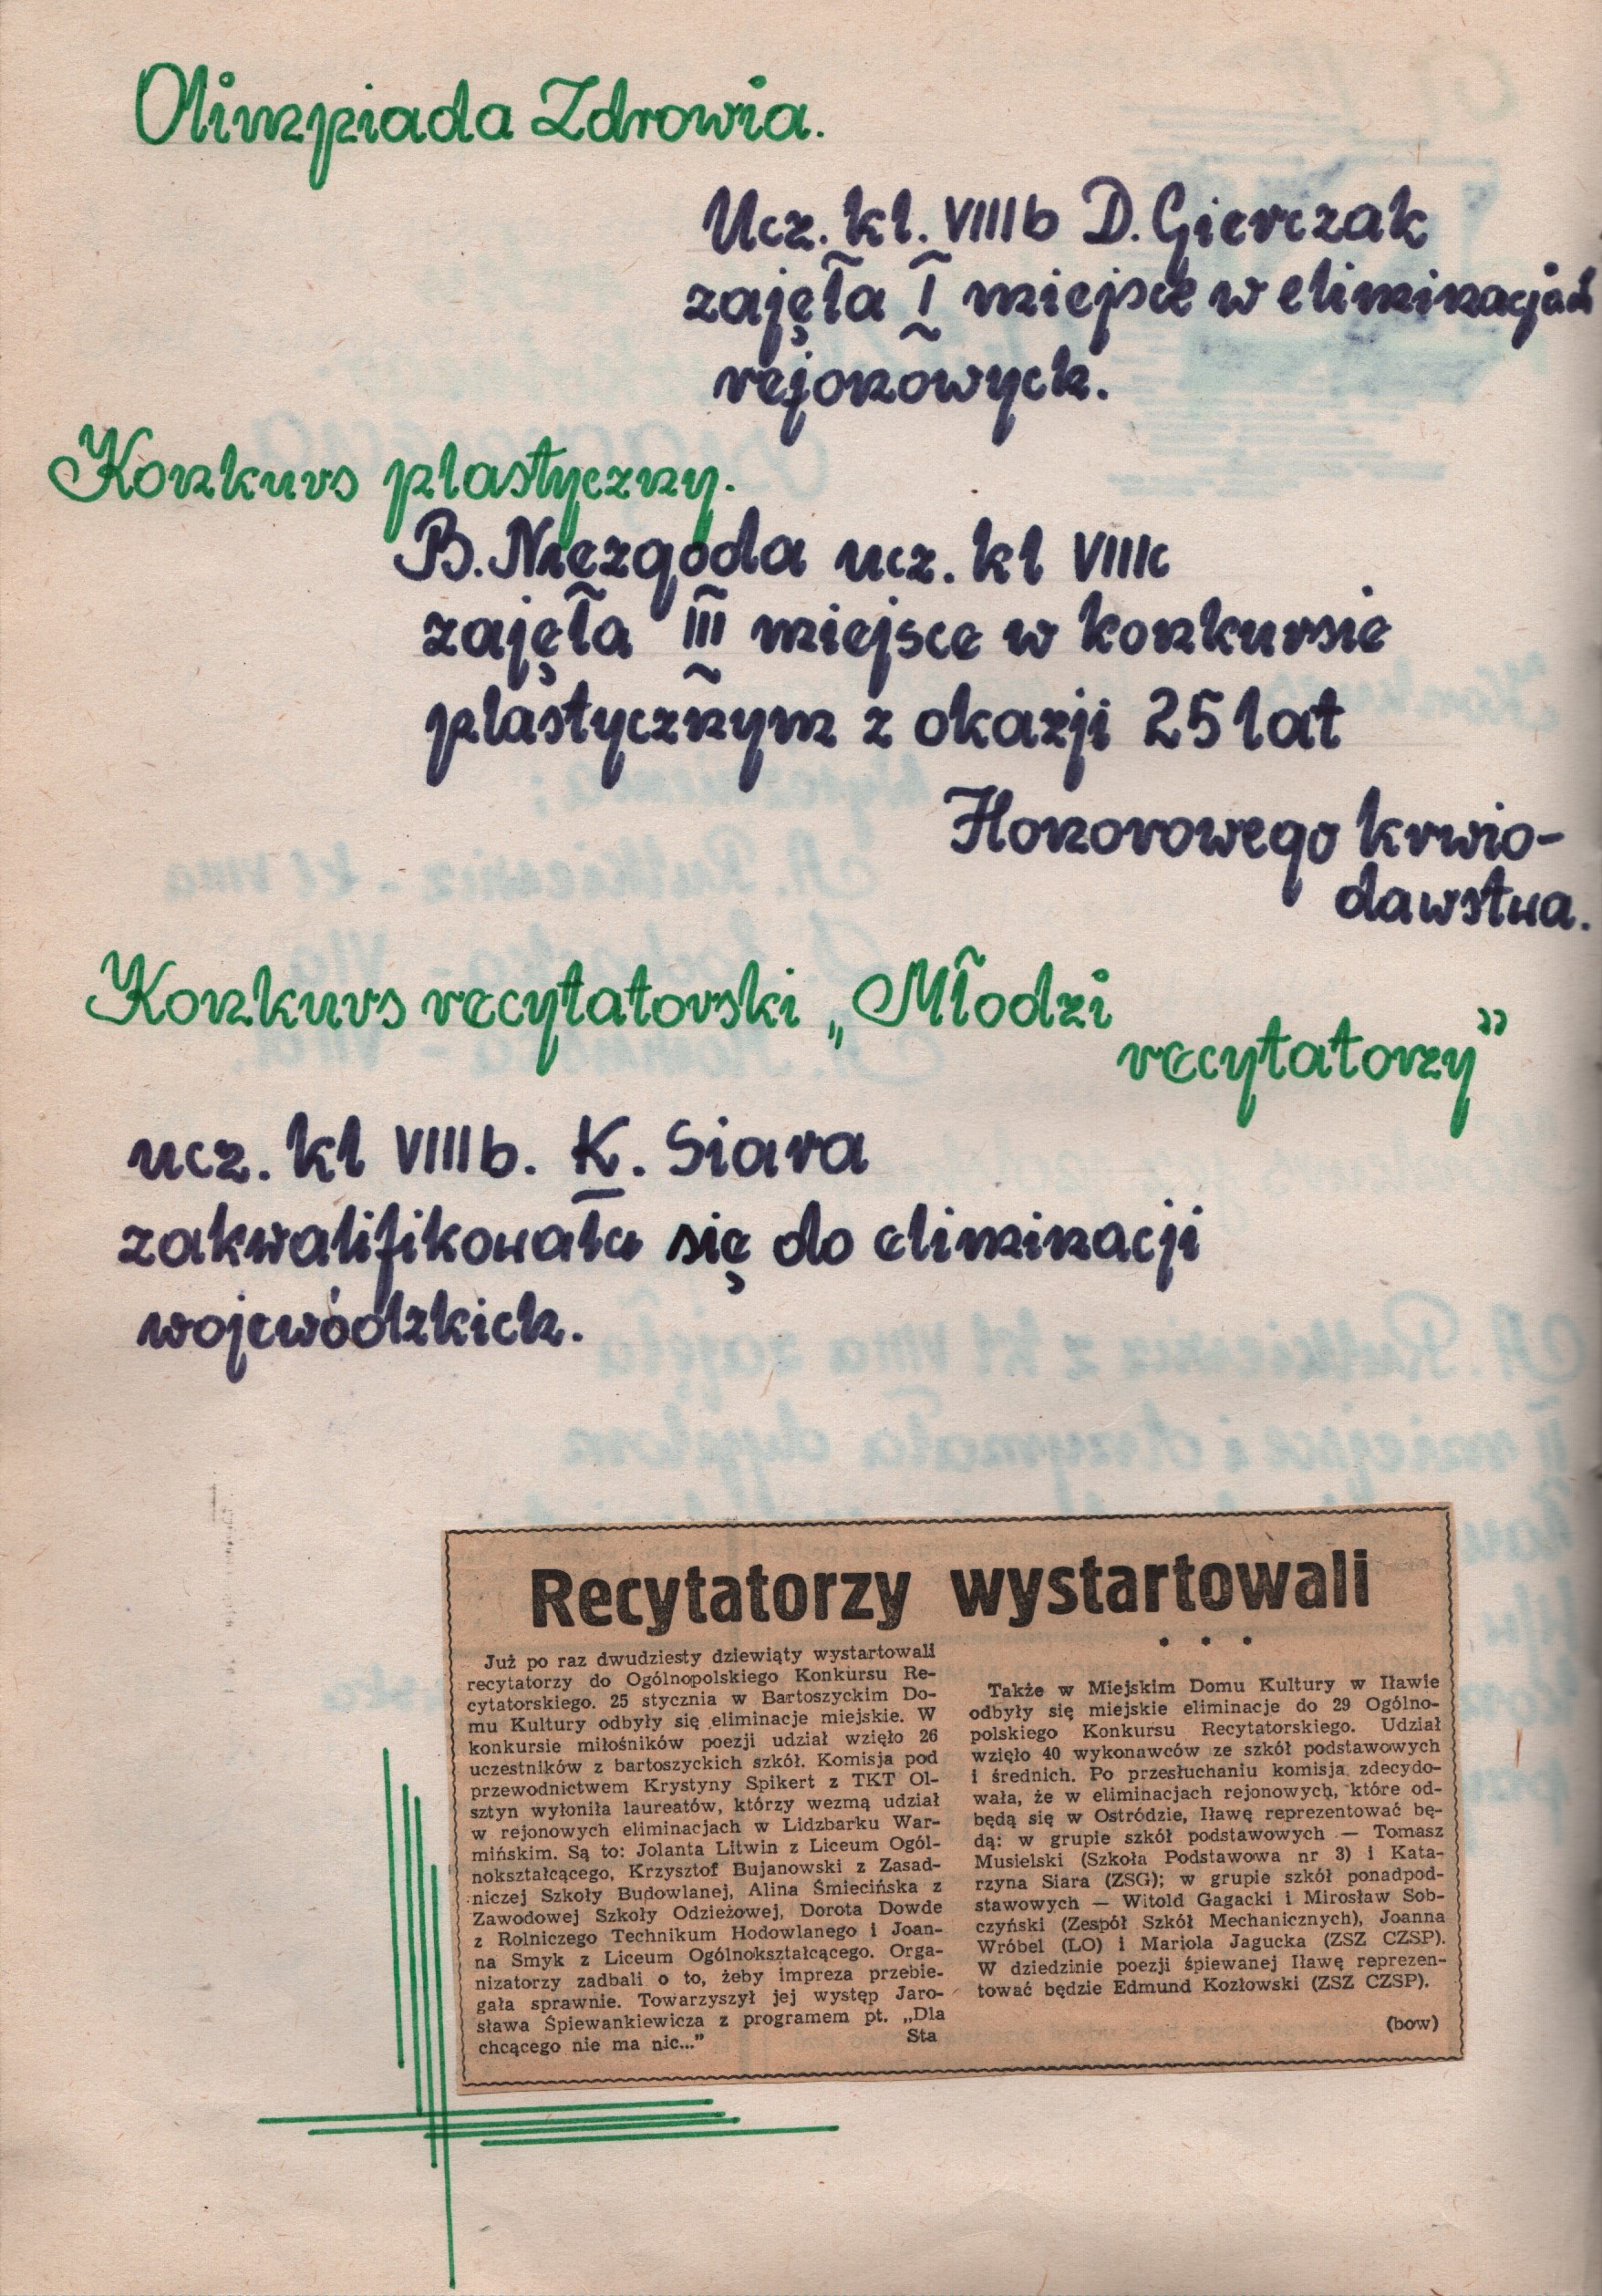 Olimpiada Zdrowia.
Ucz. kl. VIIIb D. Gierczak
zajęła I miejsce w eliminacjach
rejonowych.
Konkurs plastyczny.
B. Niezgoda ucz. kl VIIIc
zajęła III miejsce w konkursie
plastycznym z okazji 25 lat
Honorowego krwio-
dawstwa.
Konkurs recytatorski „Młodzi
recytatorzy”
ucz. kl VIIIb. K. Siara
zakwalifikowała się do eliminacji
wojewódzkich.
Recytatorzy wystartowali
Już po raz dwudziesty dziewiąty wystartowali
recytatorzy do Ogólnopolskiego Konkursu Re-
cytatorskiego. 25 stycznia w Bartoszyckim Do-
mu Kultury odbyły się eliminacje miejskie. W
konkursie miłośników poezji udział wzięło 26
uczestników z bartoszyckich szkół. Komisja pod
przewodnictwem Krystyny Spikert z TKT Ol-
sztyn wyłoniła laureatów, którzy wezmą udział
w rejonowych eliminacjach w Lidzbarku War-
mińskim. Są to: Jolanta Litwin z Liceum Ogól-
nokształcącego, Krzysztof Bujanowski z Zasad-
niczej Szkoły Budowlanej, Alina Śmiecińska z
Zawodowej Szkoły Odzieżowej, Dorota Dowde
z Rolniczego Technikum Hodowlanego i Joan-
na Smyk z Liceum Ogólnokształcącego. Orga-
nizatorzy zadbali o to, żeby impreza przebie-
gała sprawnie. Towarzyszył jej występ Jaro-
sława Śpiewankiewicza z programem pt. „Dla
chcącego nie ma nic...” Sta
* * *
Także w Miejskim Domu Kultury w Iławie
odbyły się miejskie eliminacje do 29 Ogólno-
polskiego Konkursu Recytatorskiego. Udział
wzięło 40 wykonawców ze szkół podstawowych
i średnich. Po przesłuchaniu komisja zdecydo-
wała, że w eliminacjach rejonowych, które od-
będą się w Ostródzie, Iławę reprezentować bę-
dą: w grupie szkół podstawowych — Tomasz
Musielski (Szkoła Podstawowa nr 3) i Kata-
rzyna Siara (ZSG); w grupie szkół ponadpod-
stawowych — Witold Gagacki i Mirosław Sob-
czyński (Zespół Szkół Mechanicznych), Joanna
Wróbel (LO) i Mariola Jagucka (ZSZ CZSP).
W dziedzinie poezji śpiewanej Iławę reprezen-
tować będzie Edmund Kozłowski (ZSZ CZSP).
(bow)